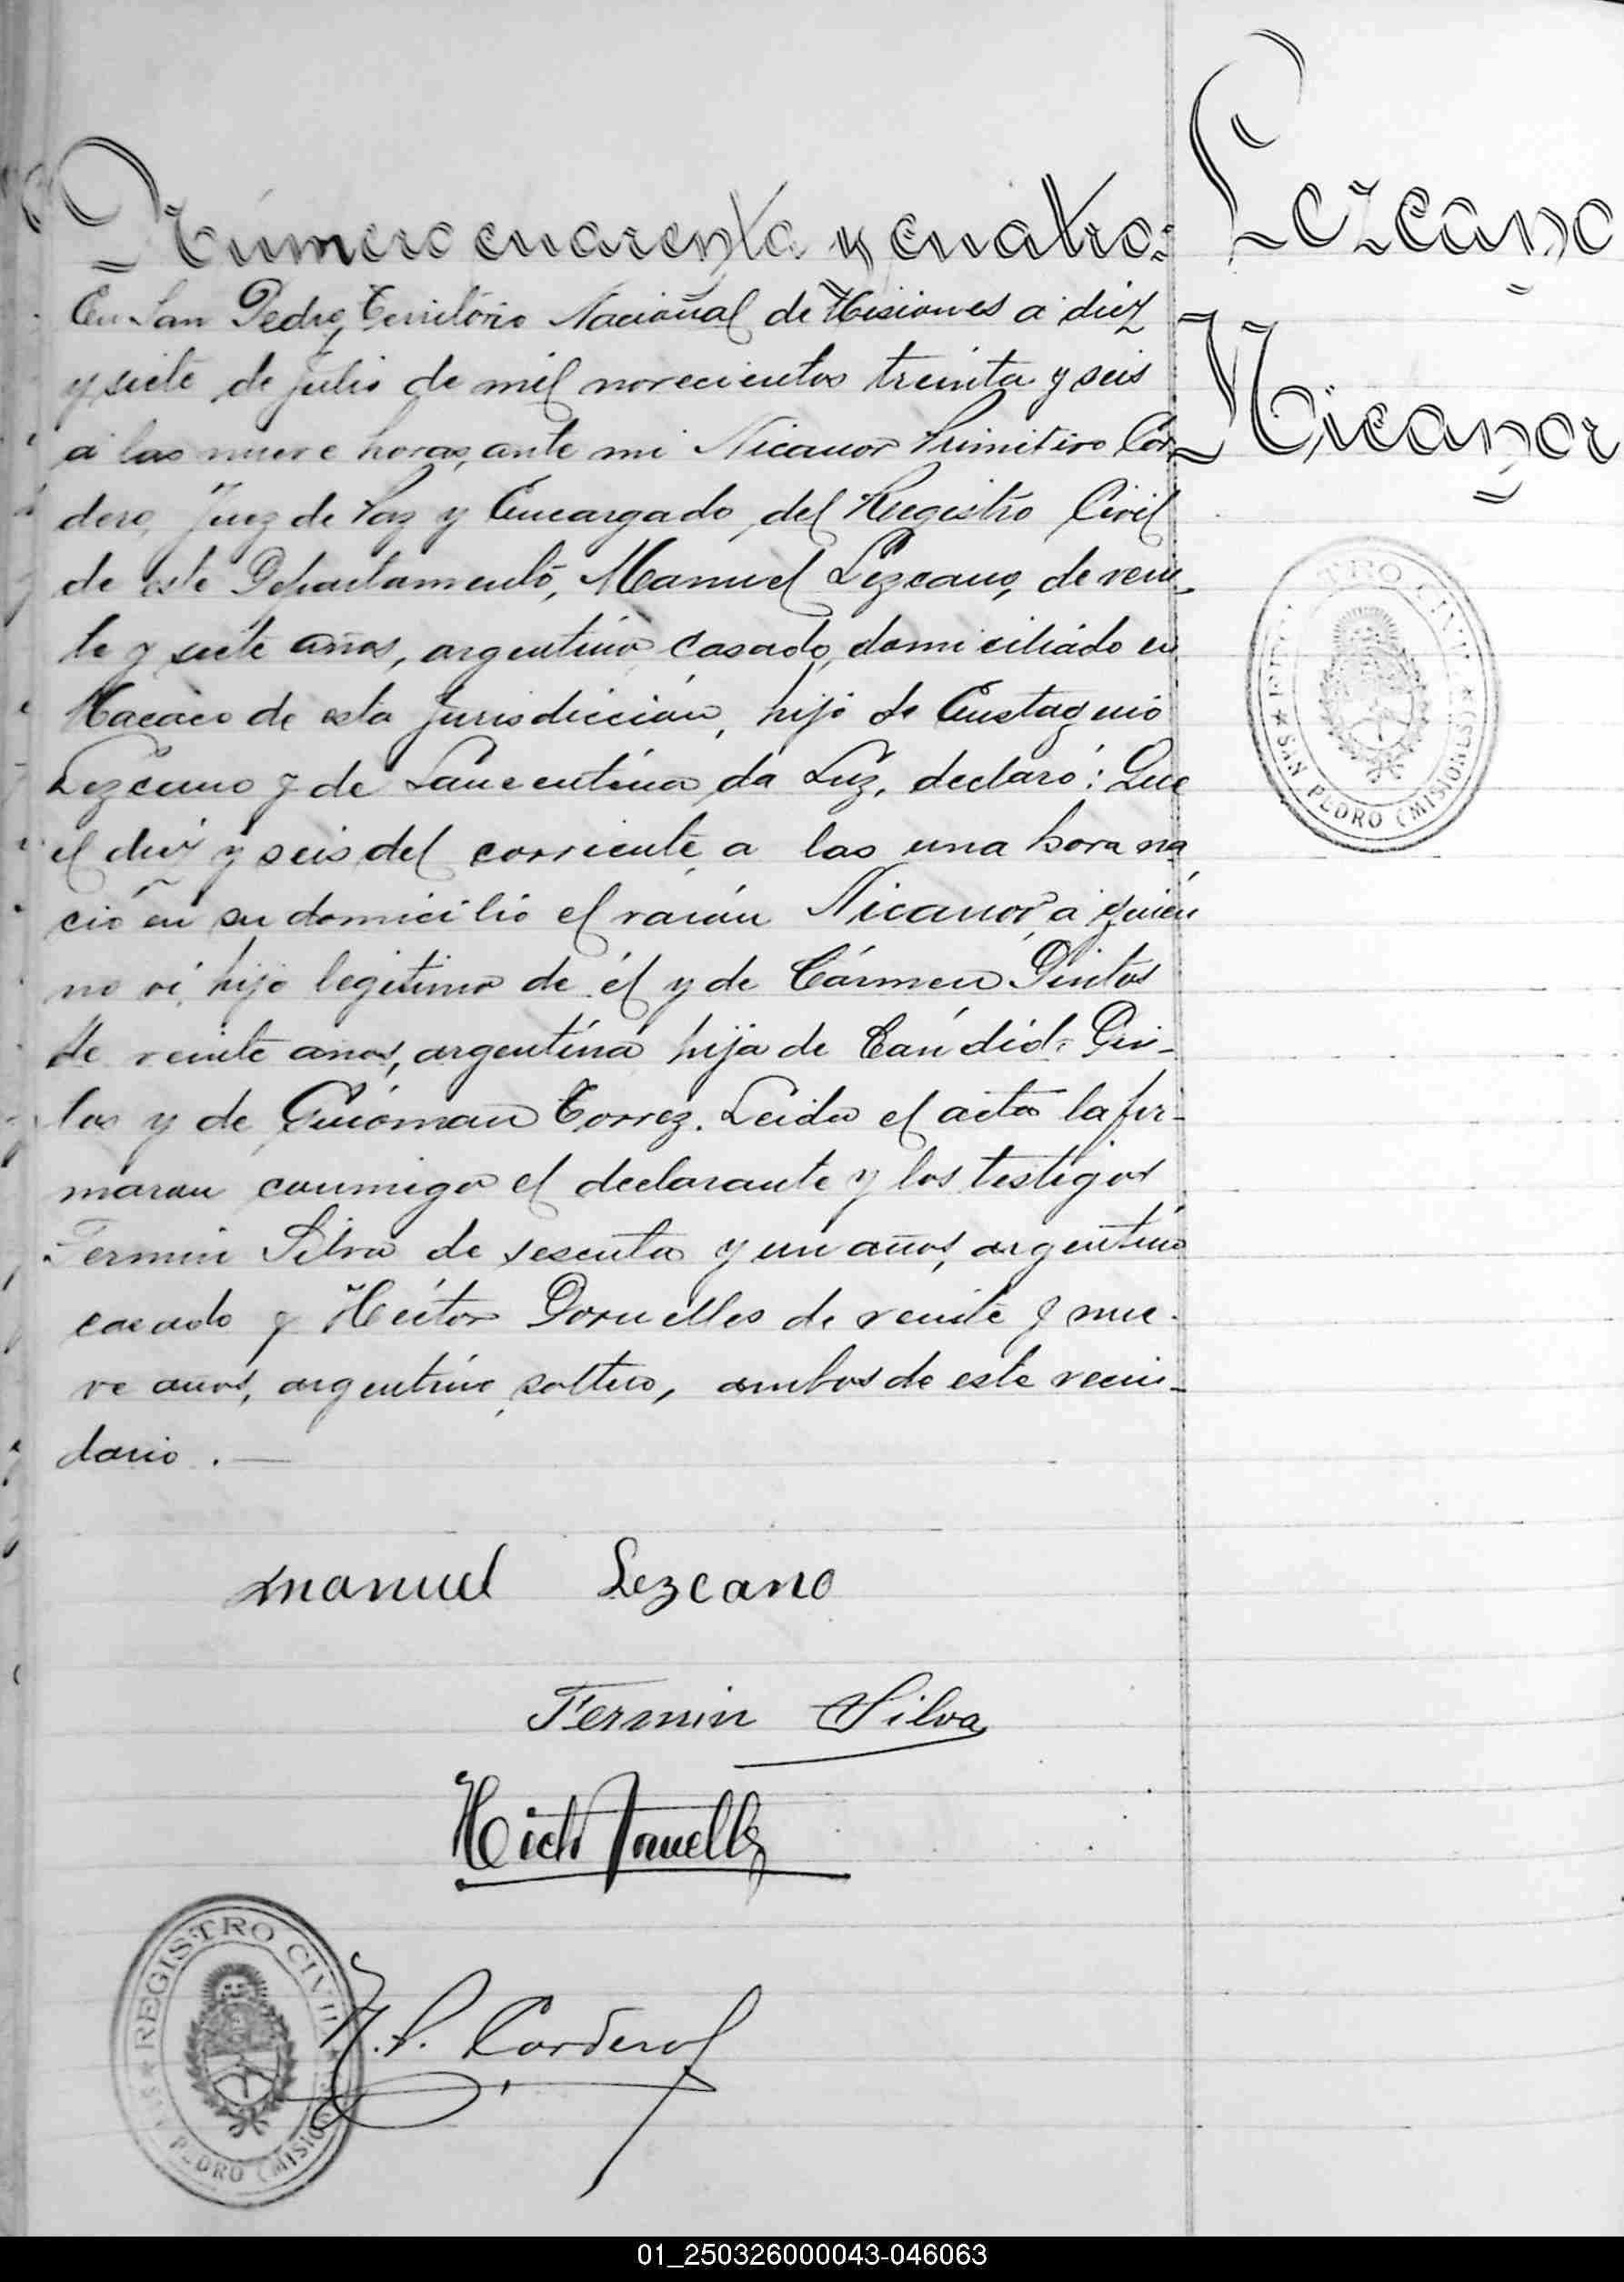 Número cuarenta y cuatro:
En San Pedro, Territorio Nacional de Misiones a diez
y siete de julio de mil novecientos treinta y seis
a las nueve horas, ante mi Nicanor Primitivo Cor
dero, Juez de Paz y Encargado del Registro Civil
de este Departamento, Manuel Lezcano, de vein
te y siete años, argentino casado, domiciliado en
Macaco de esta jurisdicción, hijo de Eustaquio
Lezcano y de Laurentina da Luz, declaró: Que
el diez y seis del corriente a las una hora na
ció en su domicilio el varón Nicanor, a quien
no ví, hijo legitimo de él y de Cármen Pintos
de veinte años, argentina hija de Cándido Pin-
tos y de Torrez. Leida el acta la fir-
maron conmigo el declarante y los testigos
Fermin Silva de sesenta y un años, argentino
casado y Héctor Dornelles de veinte y nue-
ve años, argentino, soltero, ambos de este vecin-
dario.—
Manuel Lezcano
Fermin Silva
N. P. Cordero
Lezcano
Nicanor
REGISTRO CIVIL
SAN PEDRO (MISIONES)
REGISTRO CIVIL
SAN PEDRO (MISIONES)
01_250326000043-046063